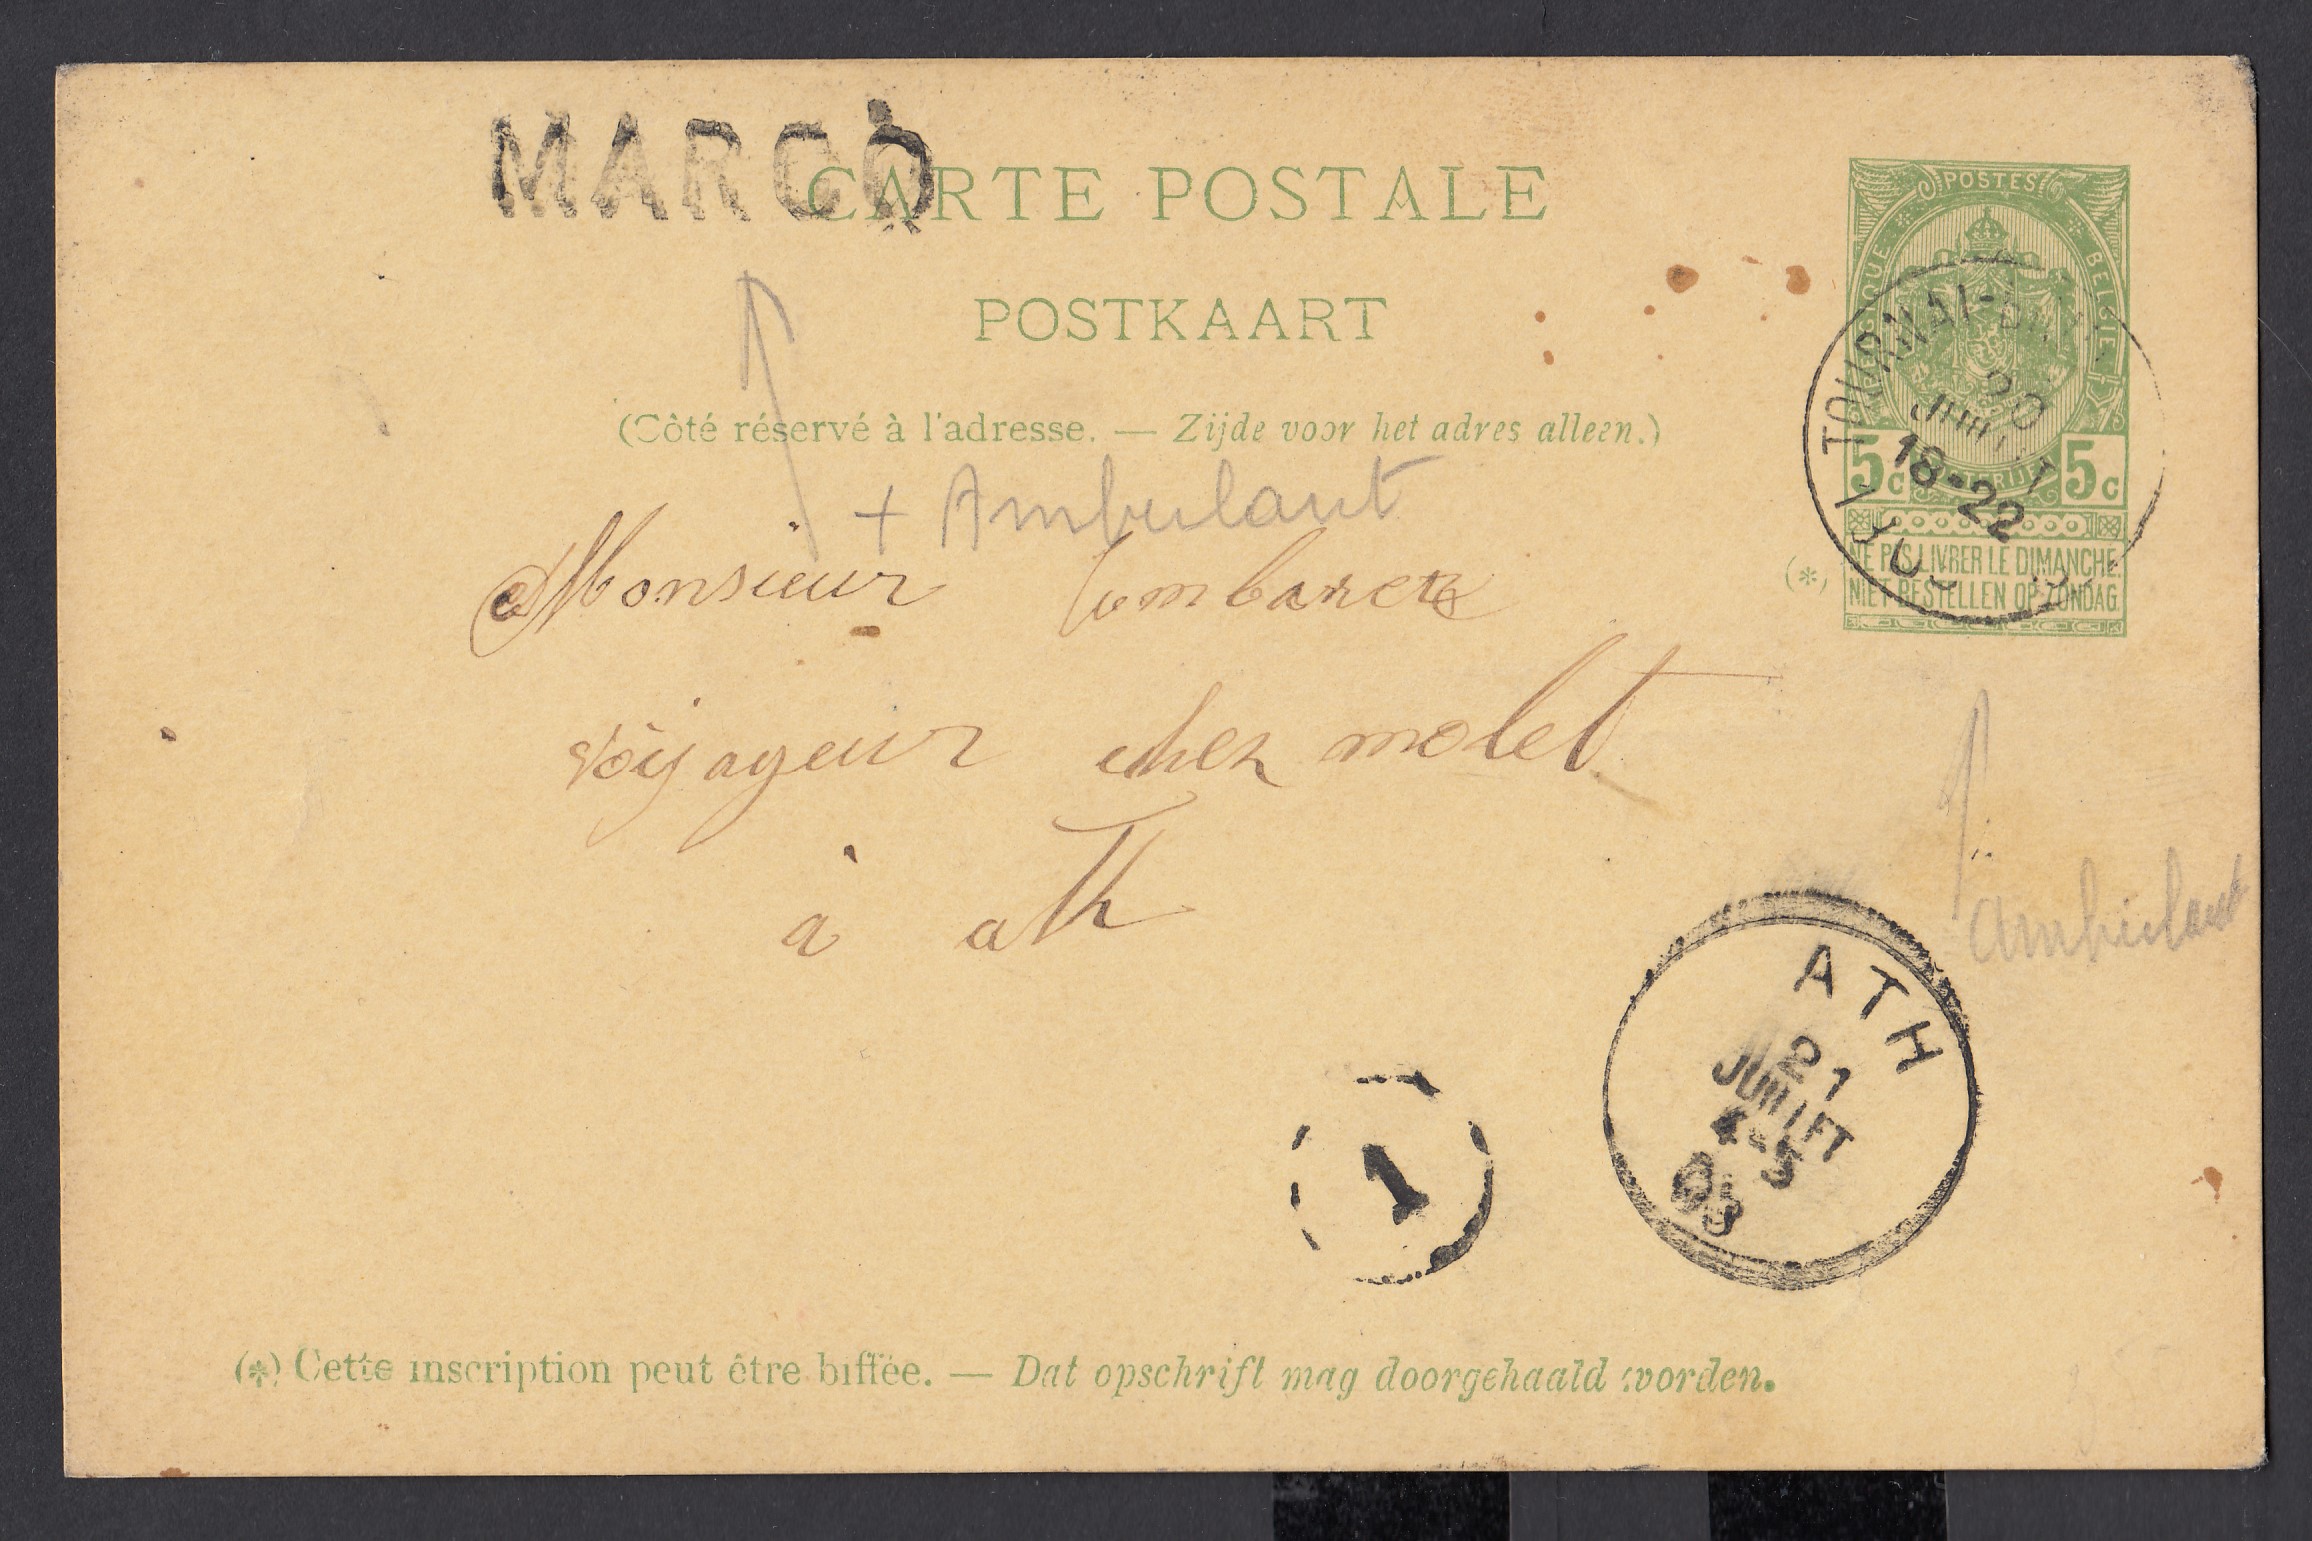 MARCQ
CARTE POSTALE
POSTKAART
(Côté réservé à l'adresse. — Zijde voor het adres alleen.)
+ Ambulant
POSTES
BELGIQUE
BELGIË
5c 5c
NE PAS LIVRER LE DIMANCHE.
NIET BESTELLEN OP ZONDAG.
(*)
TOURNAI-
20
JUIL
18-22
Monsieur
voyageur chez molet
à ath
ambulant
ATH
21
JUILLET
1
(*) Cette inscription peut être biffée. — Dat opschrift mag doorgehaald worden.